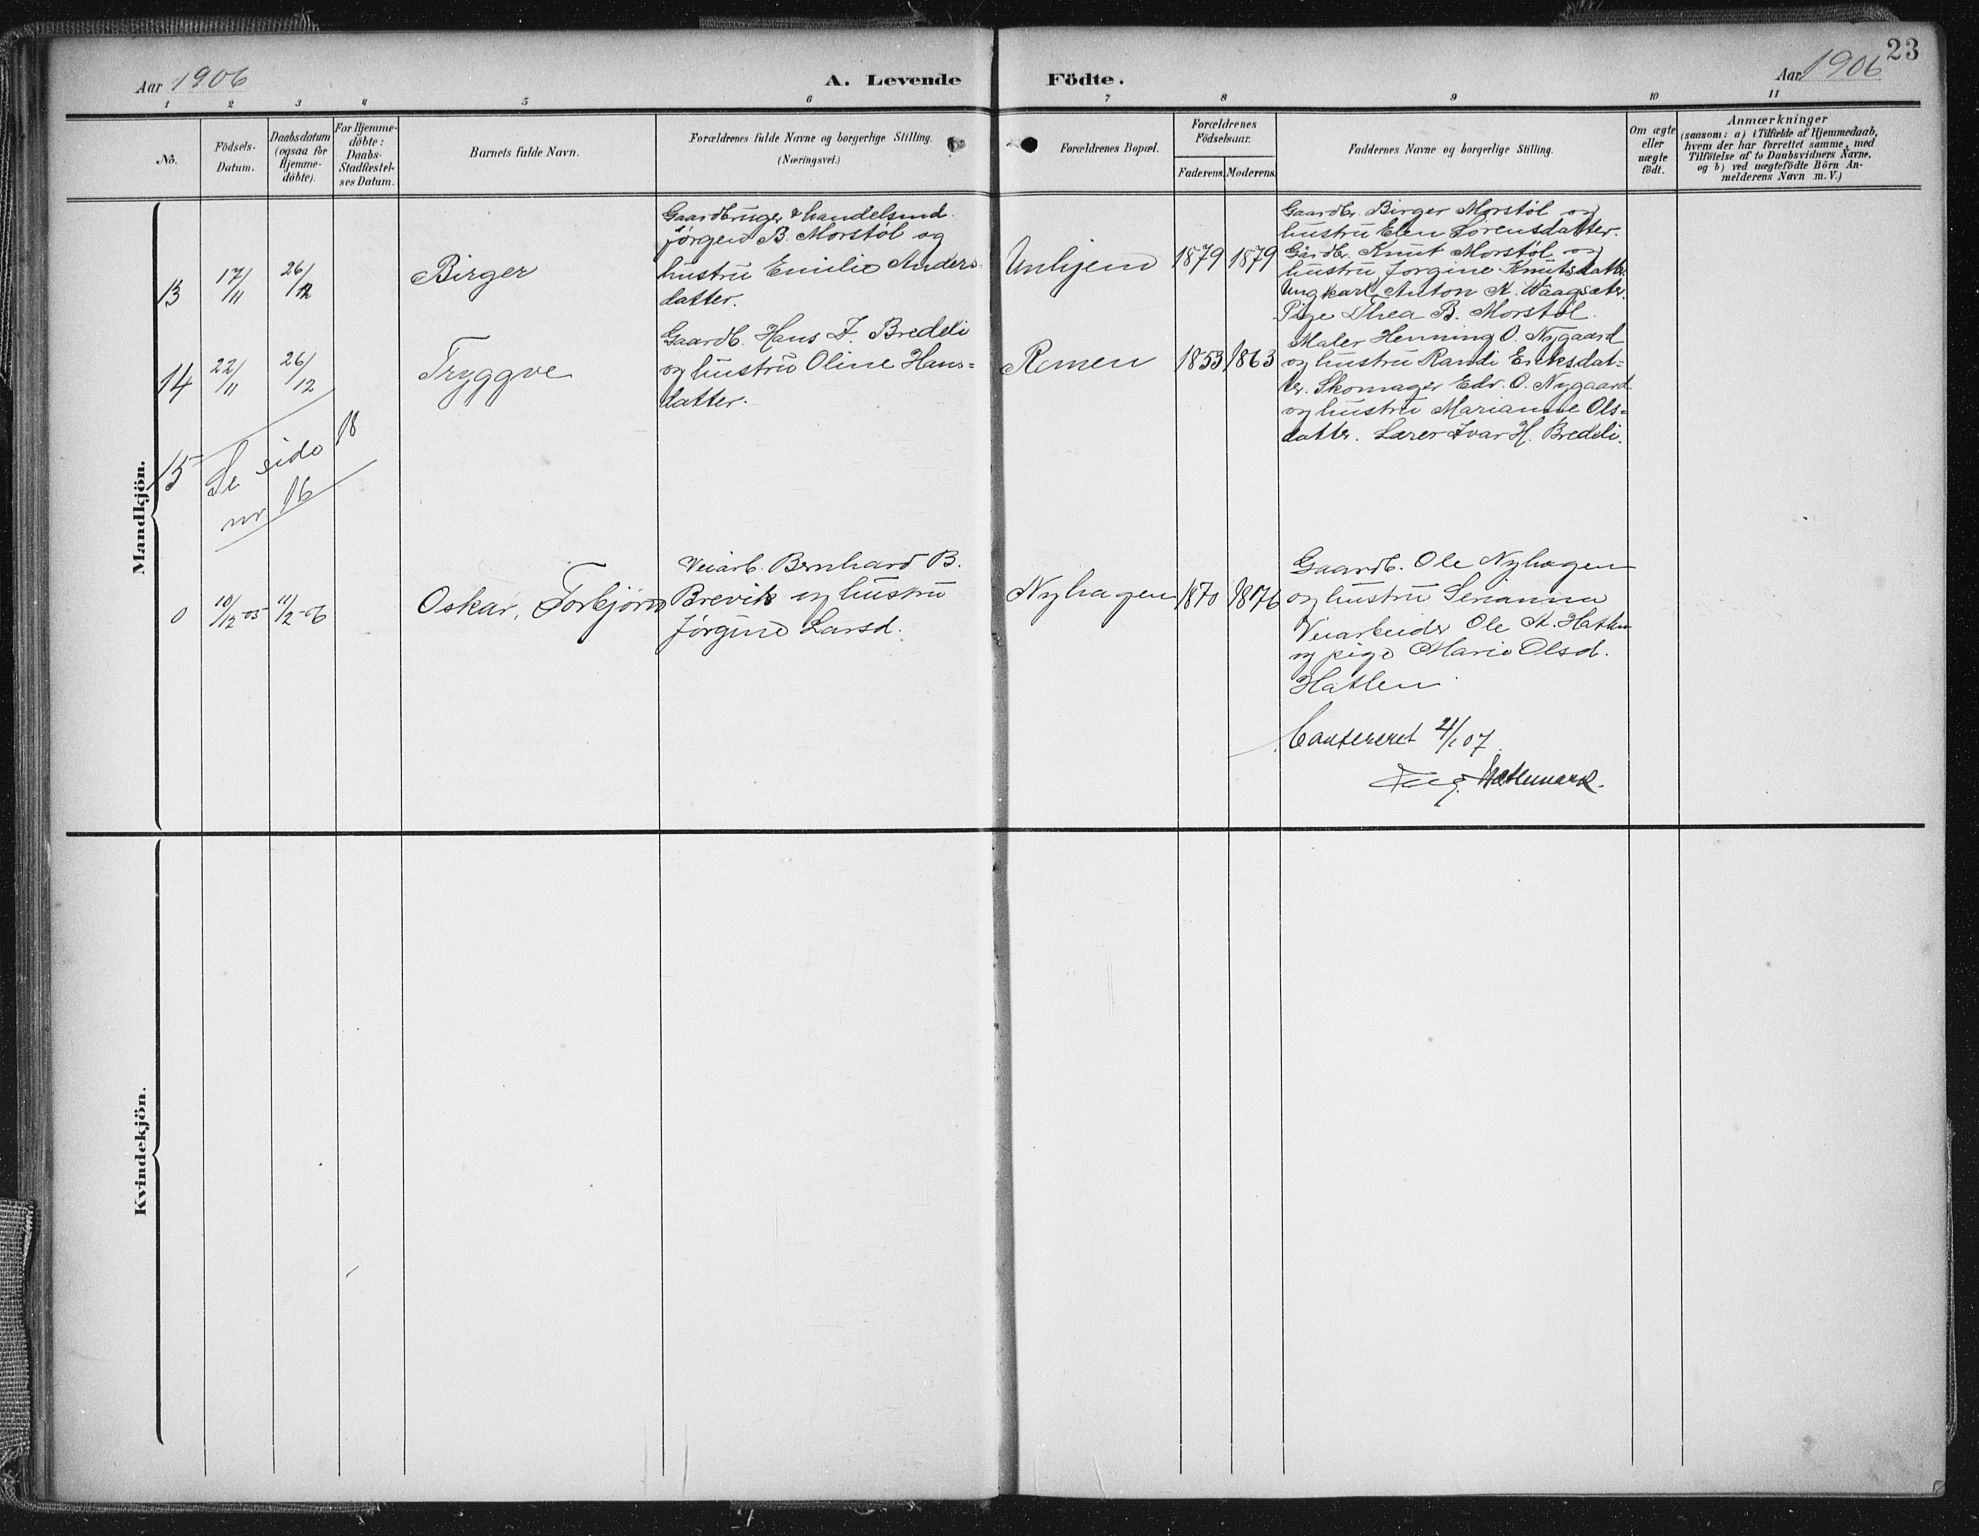 23
Aar 1906
A. Levende Födte.
Aar 1906
1 2 3 4 5 6 7 8 9 10 11
No.
Födsels-
Datum.
Daabsdatum
(ogsaa for
Hjemme-
döbte).
For Hjemme-
döbte:
Daabs-
Stadfæstel-
ses Datum.
Barnets fulde Navn.
Forældrenes fulde Navne og borgerlige Stilling.
(Næringsvei.)
Forældrenes Bopæl.
Forældrenes
Födselsaar.
Faderens. Moderens.
Faddernes Navne og borgerlige Stilling.
Om ægte
eller
uægte
födt.
Anmærkninger
(saasom: a) i Tilfælde af Hjemmedaab,
hvem der har forrettet samme, med
Tilföielse af to Daabsvidners Navne,
og b) ved uægtefödte Börn An-
melderens Navn m. V.)
Mandkjön.
13
17/11
26/12
Birger
Gaardbruger & handelsmd.
Jørgen B. Morstøl og
hustru Emilie Anders-
datter.
Unhjem
1879
1879
Gaardbr. Birger Morstøl og
hustru Elen Sørensdatter.
Gårdbr. Knut Morstøl og
hustru Jørgine Knutsdatter
Ungkarl Anton K. Waagsæter.
Pige Thea B. Morstøl.
14
22/11
26/12
Tryggve
Gaardb. Hans I. Bredeli
og hustru Oline Hans-
datter.
Remen
1853
1863
Maler Henning O. Nygaard
og hustru Randi Eriksdat-
ter. Skomager Edv. O. Nygaard
og hustru Marianne Ols-
datter. Lærer Ivar H. Bredeli.
15
Se side 18
nr. 16
0
10/12-05
11/2-06
Oskar, Torbjørn
Veiarb. Bernhard B.
Brevik og hustru
Jørgine Larsd.
Nyhagen
1870
1876
Gaardb. Ole Nyhagen
og hustru Serianna
Veiarbeider Ole K. Hatlen
og pige Marie Olsd.
Hatlen.
Confereret 4/1 07.
Kvindekjön.